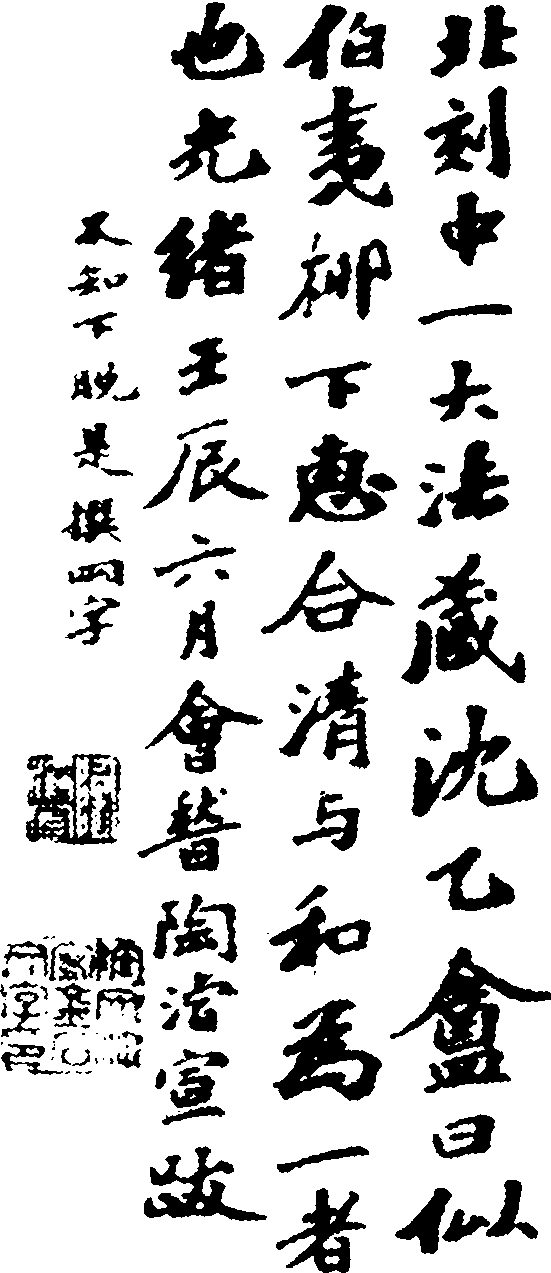 北刻中一大法藏沈乙盦曰似
伯夷柳下惠合清与和為一者
也光緒壬辰六月會稽陶濬宣跋
不知下脱是撰四字